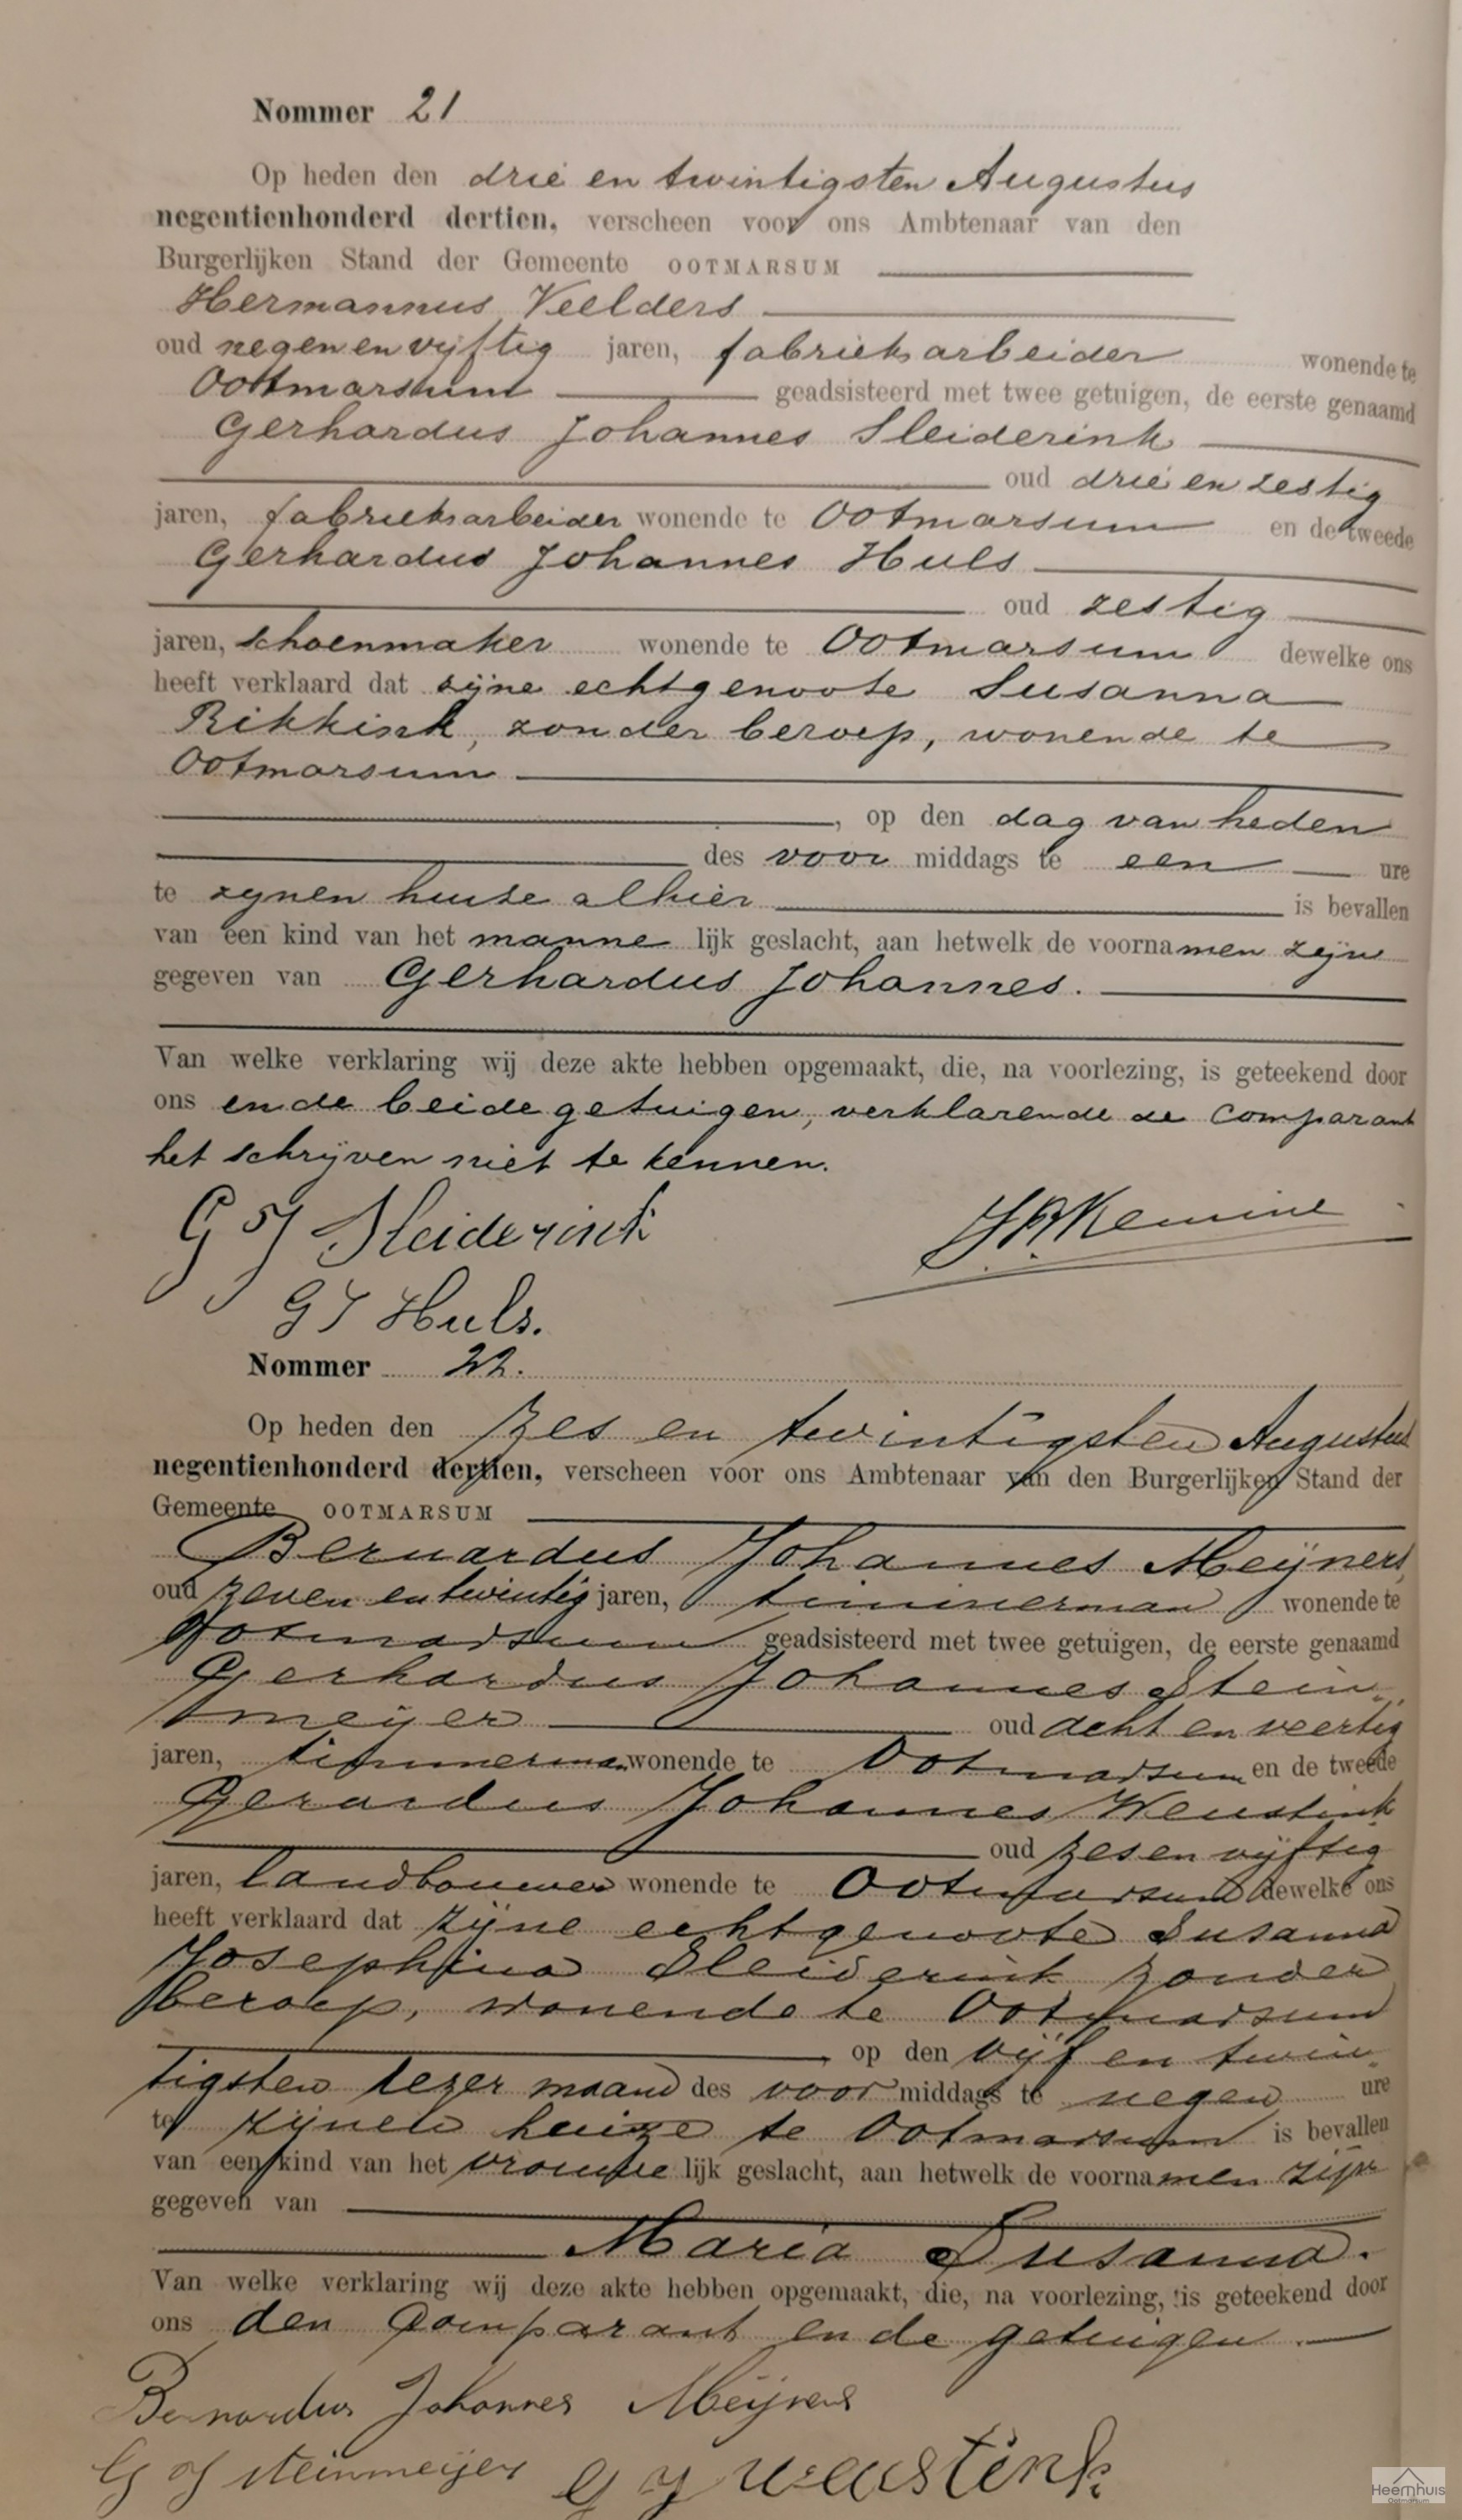 Nommer 21
Op heden den drie en twintigsten Augustus
negentienhonderd dertien, verscheen voor ons Ambtenaar van den
Burgerlijken Stand der Gemeente OOTMARSUM
Hermannus Veelders
oud negen en vijftig jaren, fabrieksarbeider wonende te
Ootmarsum geadsisteerd met twee getuigen, de eerste genaamd
Gerhardus Johannes Sleiderink
oud drie en zestig
jaren, fabrieksarbeider wonende te Ootmarsum en de tweede
Gerhardus Johannes Huls
oud zestig
jaren, schoenmaker wonende te Ootmarsum dewelke ons
heeft verklaard dat zijne echtgenoote Susanna
Rikkink, zonder beroep, wonende te
Ootmarsum
, op den dag van heden
des voor middags te een ure
te zijnen huize alhier is bevallen
van een kind van het manne lijk geslacht, aan hetwelk de voornamen zijn
gegeven van Gerhardus Johannes.
Van welke verklaring wij deze akte hebben opgemaakt, die, na voorlezing, is geteekend door
ons en de beide getuigen, verklarende de comparant
het schrijven niet te kennen.
G J Sleiderink
G J Huls.
Nommer 22.
Op heden den zes en twintigsten Augustus
negentienhonderd dertien, verscheen voor ons Ambtenaar van den Burgerlijken Stand der
Gemeente OOTMARSUM
Bernardus Johannes Meijners,
oud zeven en twintig jaren, timmerman wonende te
Ootmarsum geadsisteerd met twee getuigen, de eerste genaamd
Gerhardus Johannes Stein„
meijer oud acht en veertig
jaren, timmerman wonende te Ootmarsum en de tweede
Gerardus Johannes Weustink
oud zes en vijftig
jaren, landbouwer wonende te Ootmarsum dewelke ons
heeft verklaard dat zijne echtgenoote Susanna
Josephina Sleiderink zonder
beroep, wonende te Ootmarsum
, op den vijf en twin„
tigsten dezer maand des voor middags te negen ure
te zijnen huize te Ootmarsum is bevallen
van een kind van het vrouwe lijk geslacht, aan hetwelk de voornamen zijn
gegeven van
Maria Susanna.
Van welke verklaring wij deze akte hebben opgemaakt, die, na voorlezing, is geteekend door
ons den Comparant en de getuigen.
Bernardus Johannes Meijners
G J Steinmeijer G J Weustink
Heemhuis
Ootmarsum